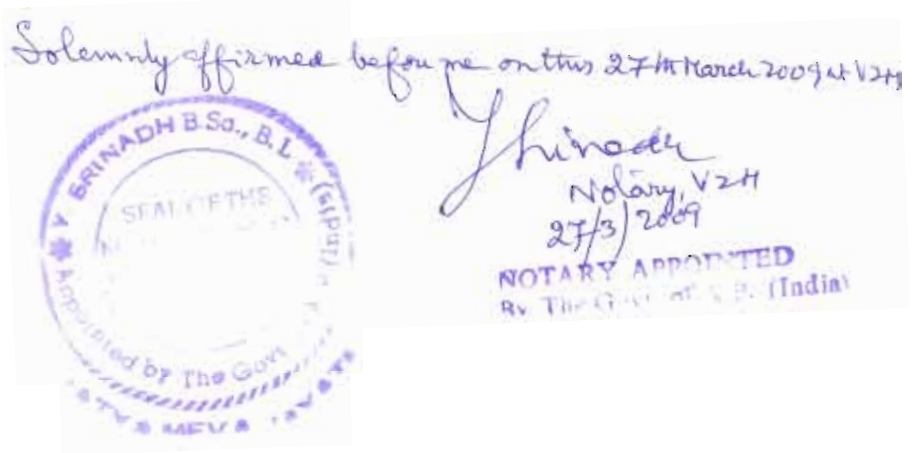 Solemnly affirmed before me on this 27th March 2009 at VZM
Y Srinadh
Notary, VZM
27/3/2009
NOTARY APPOINTED
By The Govt of A.P. (India)
Y SRINADH B.Sc., B.L
(India)
Appointed by The Govt
SEAL OF THE
SATYAMEVA JAYATE